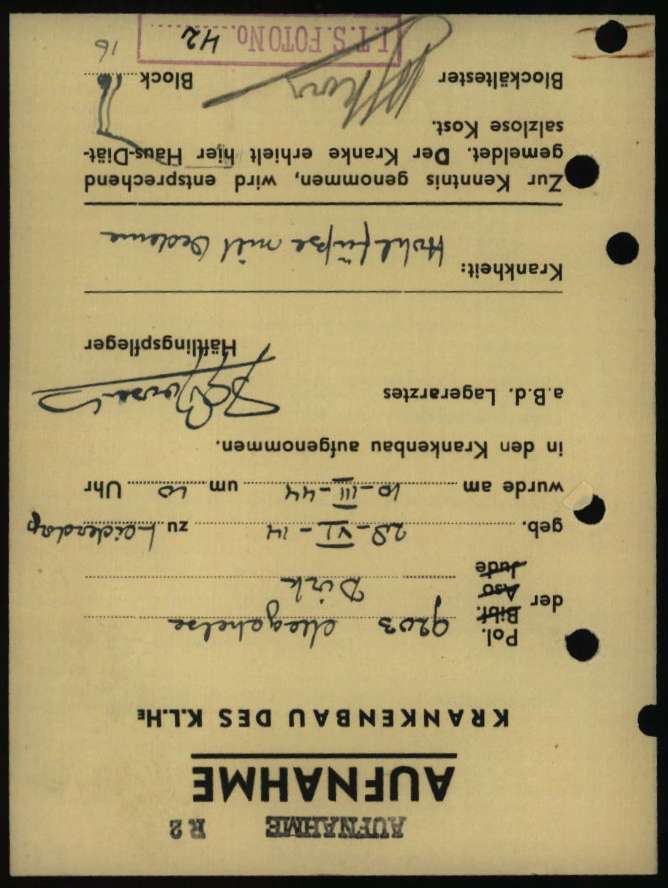 AUFNAHME R 2
AUFNAHME
KRANKENBAU DES K.L.HE
Pol.
Bibf.
der
Aso
Jude
9203
Dirk
geb. 28-VI-14 zu Leiderdorp
wurde am 10-III-44 um 10 Uhr
in den Krankenbau aufgenommen.
a.B.d. Lagerarztes
Häftlingspfleger
Krankheit: Hohlfüße mit Oedeme
Zur Kenntnis genommen, wird entsprechend
gemeldet. Der Kranke erhielt hier Haus-Diät-
salzlose Kost.
Blockältester Block
16
I.T.S. FOTO No. 42